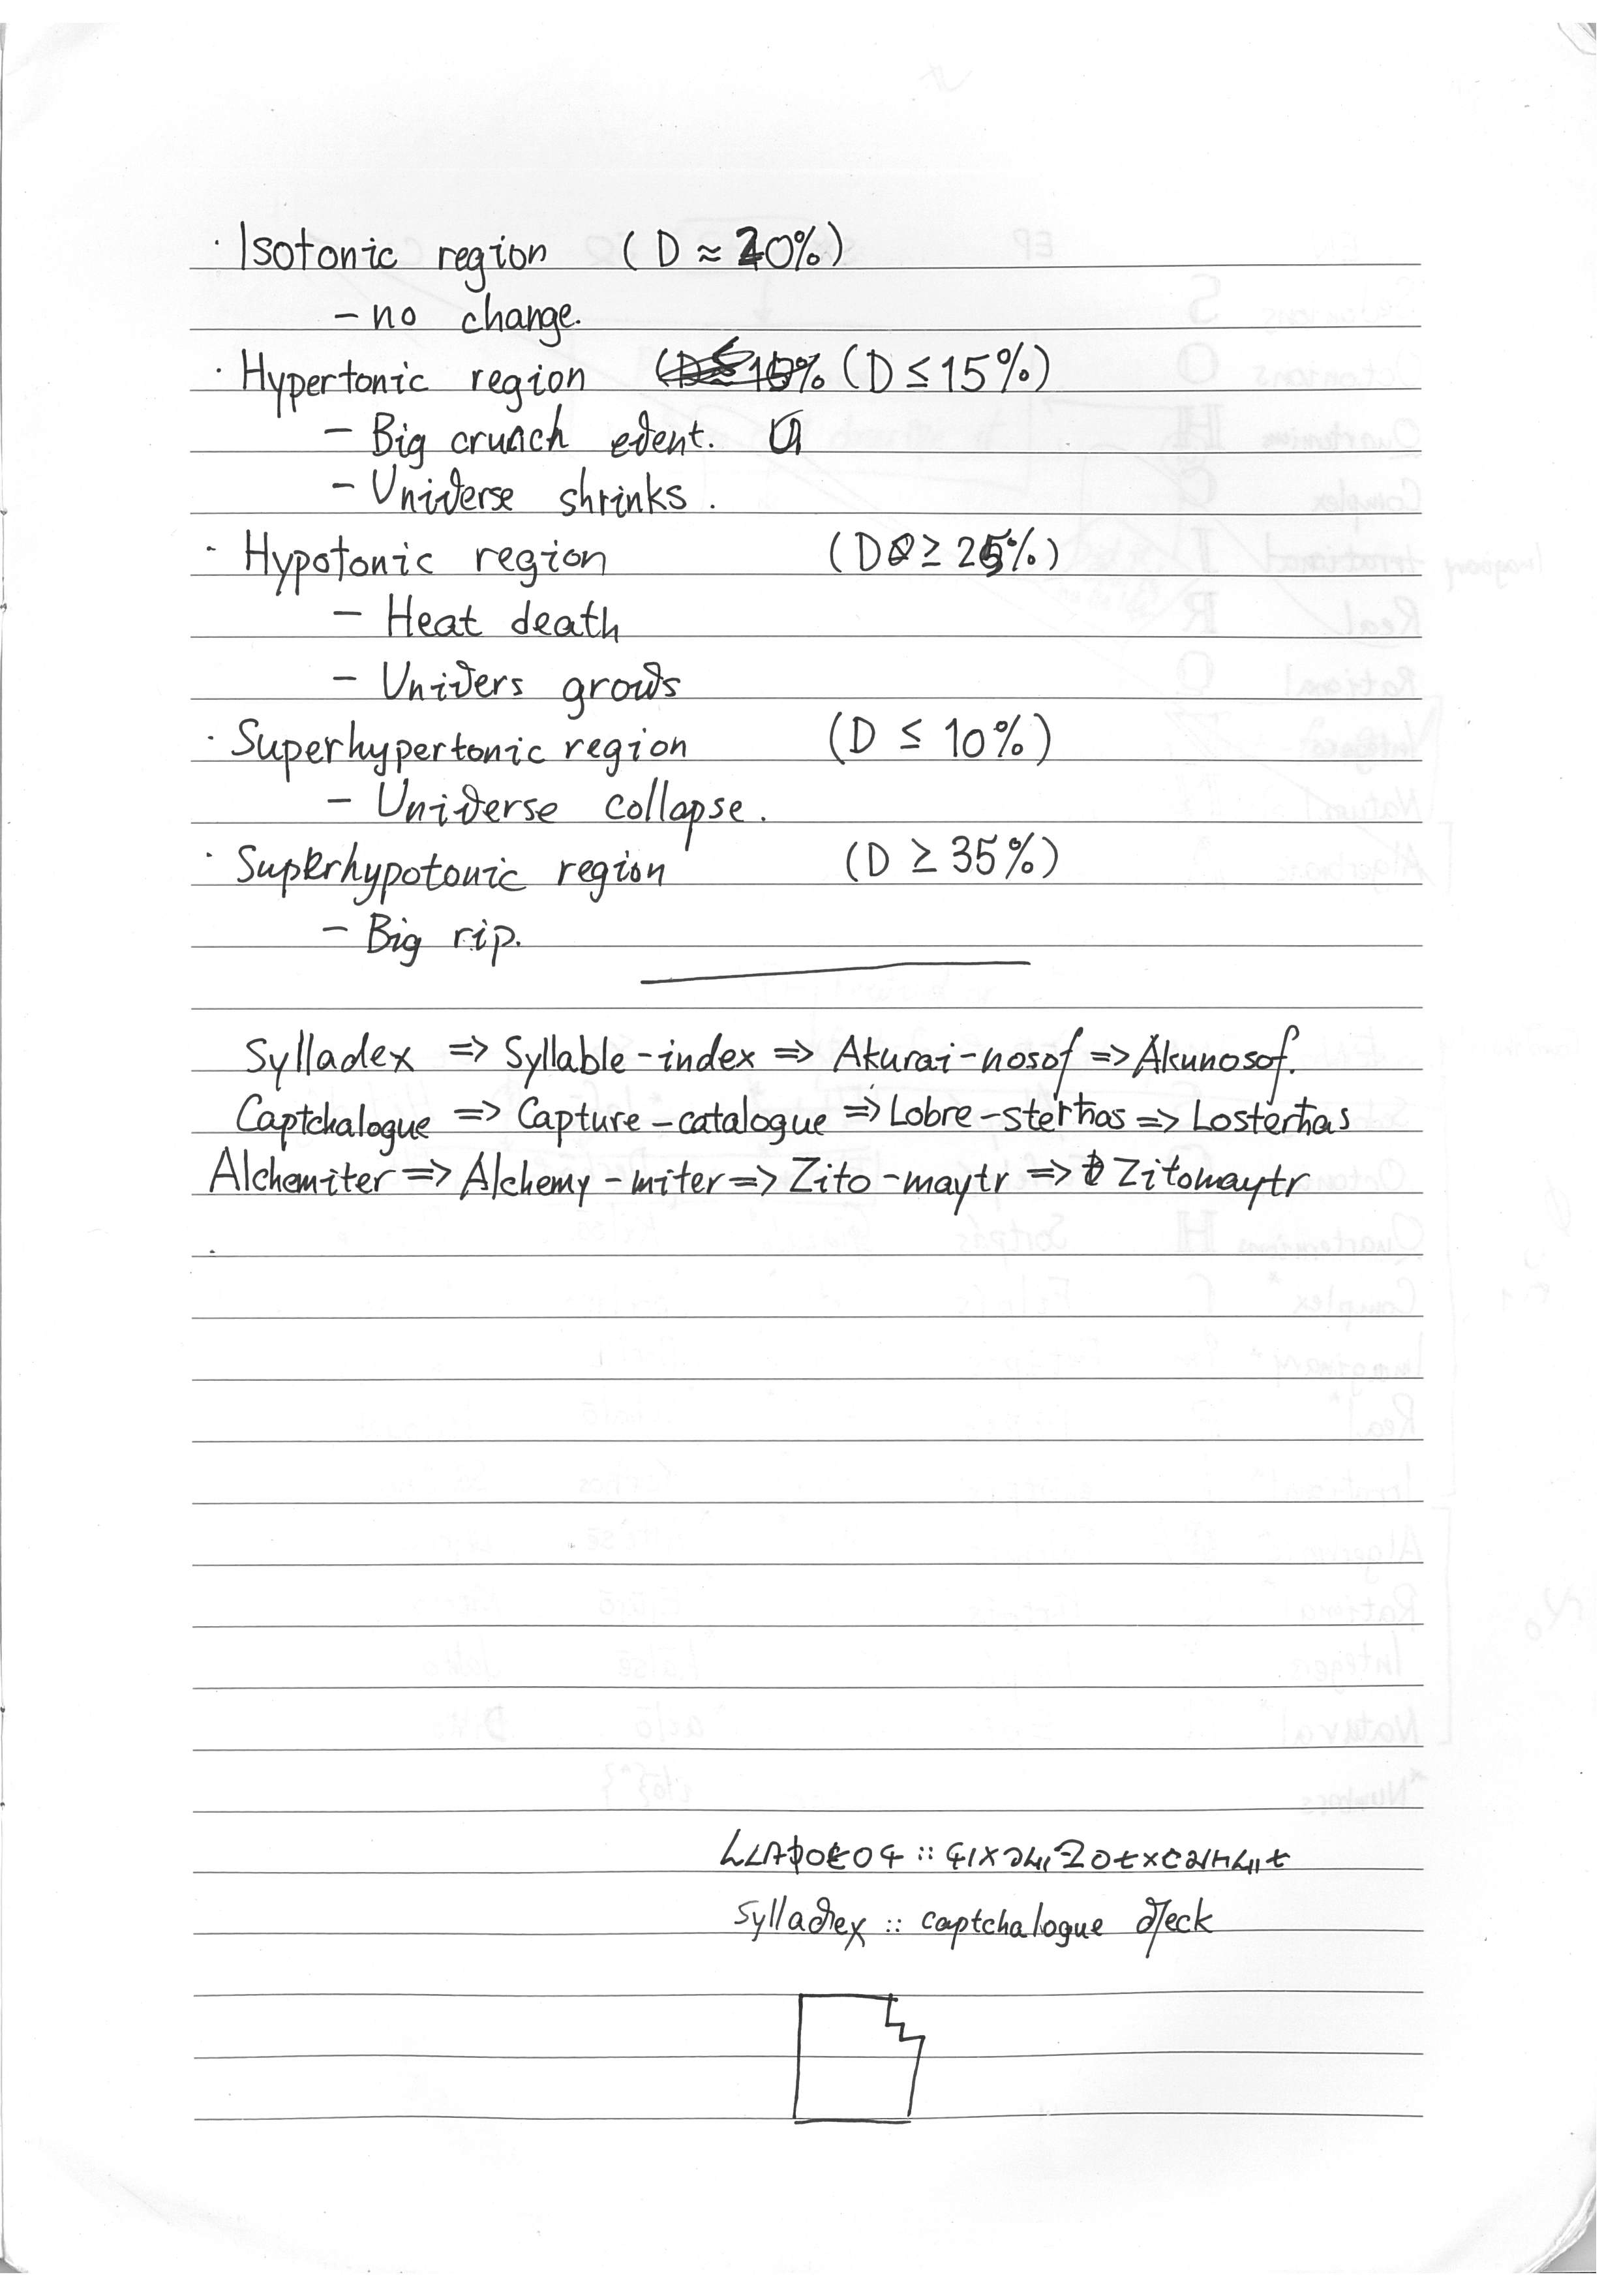 · Isotonic region (D ≈ 20%)
– no change.
· Hypertonic region (D ≤ 15%)
– Big crunch event.
– Universe shrinks.
· Hypotonic region (D ≥ 25%)
– Heat death
– Univers grows
· Superhypertonic region (D ≤ 10%)
– Universe collapse.
· Superhypotonic region (D ≥ 35%)
– Big rip.
Sylladex => Syllable-index => Akurai-nosof => Akunosof.
Captchalogue => Capture-catalogue => Lobre-sterhas => Losterhas
Alchemiter => Alchemy-miter => Zito-maytr => Zitomaytr
sylladex :: captchalogue deck